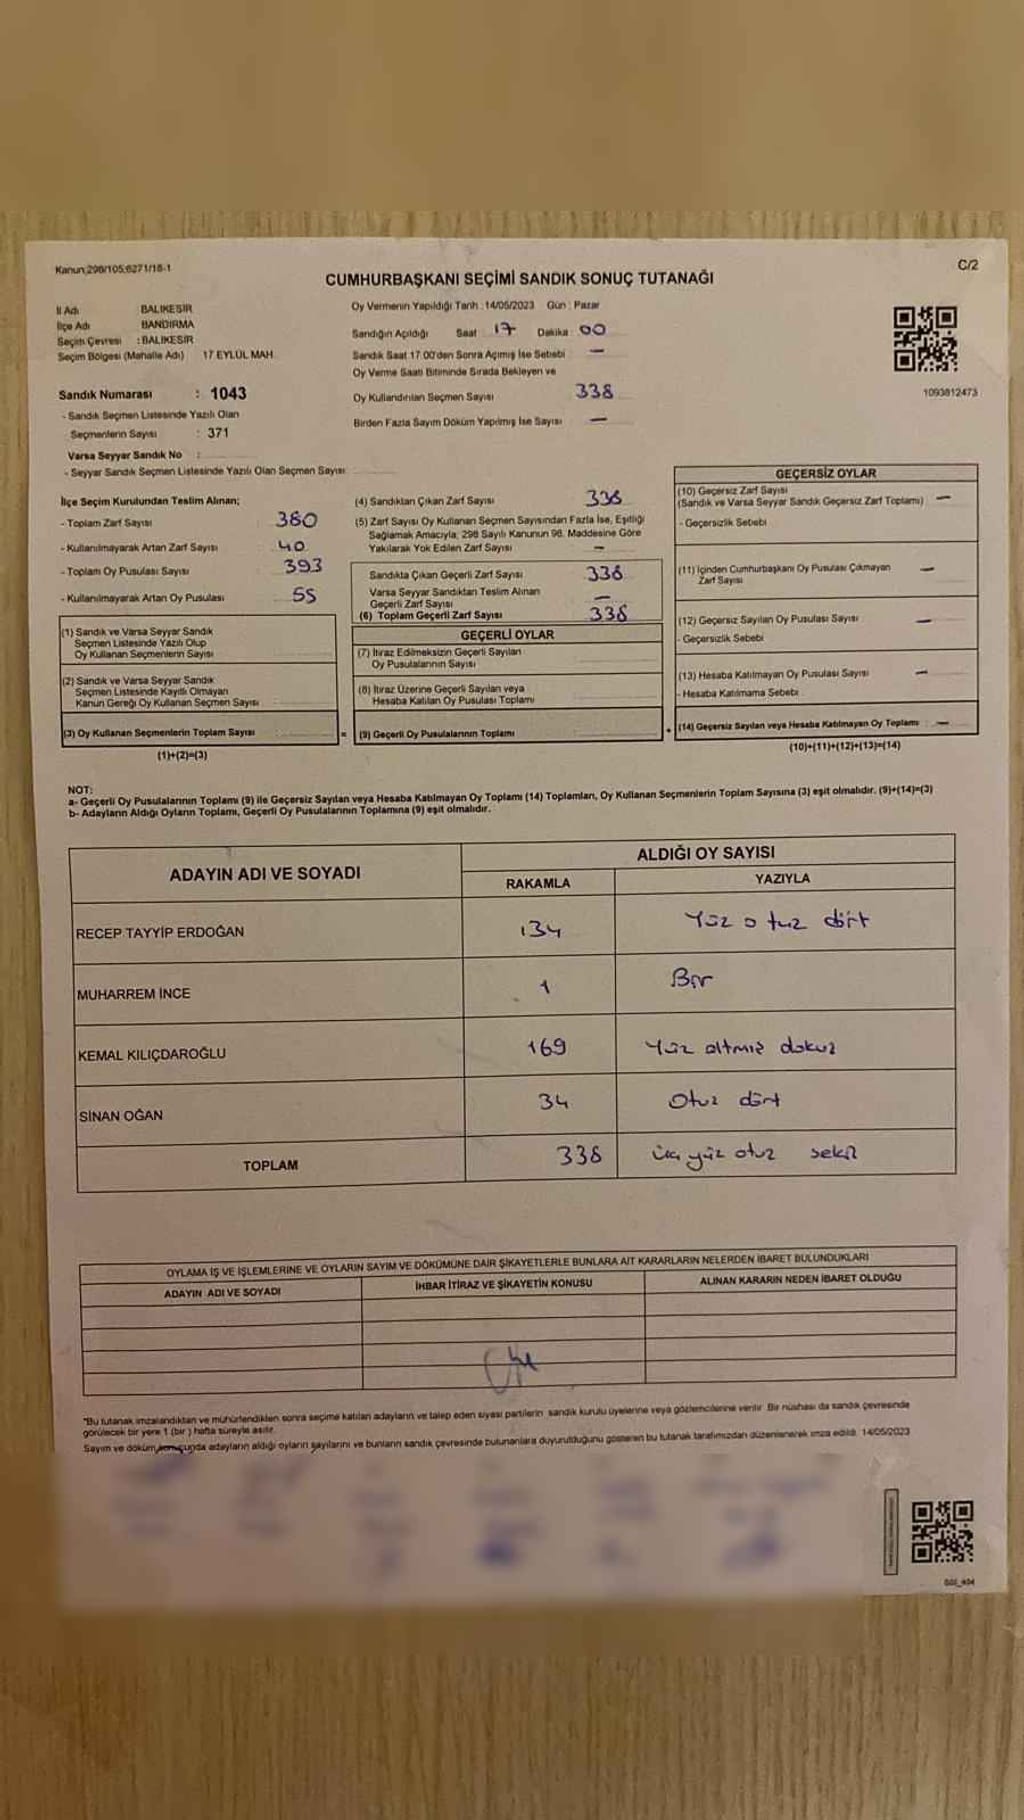 Kanun;298/105;6271/18-1
C/2
CUMHURBAŞKANI SEÇİMİ SANDIK SONUÇ TUTANAĞI
İl Adı BALIKESİR
İlçe Adı BANDIRMA
Seçim Çevresi : BALIKESİR
Seçim Bölgesi (Mahalle Adı) 17 EYLÜL MAH.
Oy Vermenin Yapıldığı Tarih : 14/05/2023 Gün : Pazar
Sandığın Açıldığı Saat 17 Dakika 00
Sandık Saat 17.00'den Sonra Açımış İse Sebebi —
Oy Verme Saati Bitiminde Sırada Bekleyen ve
Oy Kullandırılan Seçmen Sayısı 338
Birden Fazla Sayım Döküm Yapılmış İse Sayısı —
1093812473
Sandık Numarası : 1043
- Sandık Seçmen Listesinde Yazılı Olan
Seçmenlerin Sayısı : 371
Varsa Seyyar Sandık No :
- Seyyar Sandık Seçmen Listesinde Yazılı Olan Seçmen Sayısı:
İlçe Seçim Kurulundan Teslim Alınan;
- Toplam Zarf Sayısı 380
- Kullanılmayarak Artan Zarf Sayısı : 40
- Toplam Oy Pusulası Sayısı 393
- Kullanılmayarak Artan Oy Pusulası 55
(1) Sandık ve Varsa Seyyar Sandık
Seçmen Listesinde Yazılı Olup
Oy Kullanan Seçmenlerin Sayısı
(2) Sandık ve Varsa Seyyar Sandık
Seçmen Listesinde Kayıtlı Olmayan
Kanun Gereği Oy Kullanan Seçmen Sayısı
(3) Oy Kullanan Seçmenlerin Toplam Sayısı
(1)+(2)=(3)
(4) Sandıktan Çıkan Zarf Sayısı 338
(5) Zarf Sayısı Oy Kullanan Seçmen Sayısından Fazla İse, Eşitliği
Sağlamak Amacıyla; 298 Sayılı Kanunun 98. Maddesine Göre
Yakılarak Yok Edilen Zarf Sayısı —
Sandıkta Çıkan Geçerli Zarf Sayısı 338
Varsa Seyyar Sandıktan Teslim Alınan
Geçerli Zarf Sayısı —
(6) Toplam Geçerli Zarf Sayısı 338
GEÇERLİ OYLAR
(7) İtiraz Edilmeksizin Geçerli Sayılan
Oy Pusulalarının Sayısı
(8) İtiraz Üzerine Geçerli Sayılan veya
Hesaba Katılan Oy Pusulası Toplamı
= (9) Geçerli Oy Pusulalarının Toplamı
GEÇERSİZ OYLAR
(10) Geçersiz Zarf Sayısı
(Sandık ve Varsa Seyyar Sandık Geçersiz Zarf Toplamı) —
- Geçersizlik Sebebi
(11) İçinden Cumhurbaşkanı Oy Pusulası Çıkmayan —
Zarf Sayısı
(12) Geçersiz Sayılan Oy Pusulası Sayısı —
- Geçersizlik Sebebi
(13) Hesaba Katılmayan Oy Pusulası Sayısı —
- Hesaba Katılmama Sebebi
+ (14) Geçersiz Sayılan veya Hesaba Katılmayan Oy Toplamı : —
(10)+(11)+(12)+(13)=(14)
NOT:
a- Geçerli Oy Pusulalarının Toplamı (9) ile Geçersiz Sayılan veya Hesaba Katılmayan Oy Toplamı (14) Toplamları, Oy Kullanan Seçmenlerin Toplam Sayısına (3) eşit olmalıdır. (9)+(14)=(3)
b- Adayların Aldığı Oyların Toplamı, Geçerli Oy Pusulalarının Toplamına (9) eşit olmalıdır.
ADAYIN ADI VE SOYADI
ALDIĞI OY SAYISI
RAKAMLA YAZIYLA
RECEP TAYYİP ERDOĞAN 134 Yüz otuz dört
MUHARREM İNCE 1 Bir
KEMAL KILIÇDAROĞLU 169 Yüz altmış dokuz
SİNAN OĞAN 34 Otuz dört
TOPLAM 338 üç yüz otuz sekiz
OYLAMA İŞ VE İŞLEMLERİNE VE OYLARIN SAYIM VE DÖKÜMÜNE DAİR ŞİKAYETLERLE BUNLARA AİT KARARLARIN NELERDEN İBARET BULUNDUKLARI
ADAYIN ADI VE SOYADI İHBAR İTİRAZ VE ŞİKAYETİN KONUSU ALINAN KARARIN NEDEN İBARET OLDUĞU
*Bu tutanak imzalandıktan ve mühürlendikten sonra seçime katılan adayların ve talep eden siyasi partilerin sandık kurulu üyelerine veya gözlemcilerine verilir. Bir nüshası da sandık çevresinde
görülecek bir yere 1 (bir ) hafta süreyle asılır.
Sayım ve döküm sonucunda adayların aldığı oyların sayılarını ve bunların sandık çevresinde bulunanlara duyurulduğunu gösteren bu tutanak tarafımızdan düzenlenerek imza edildi. 14/05/2023